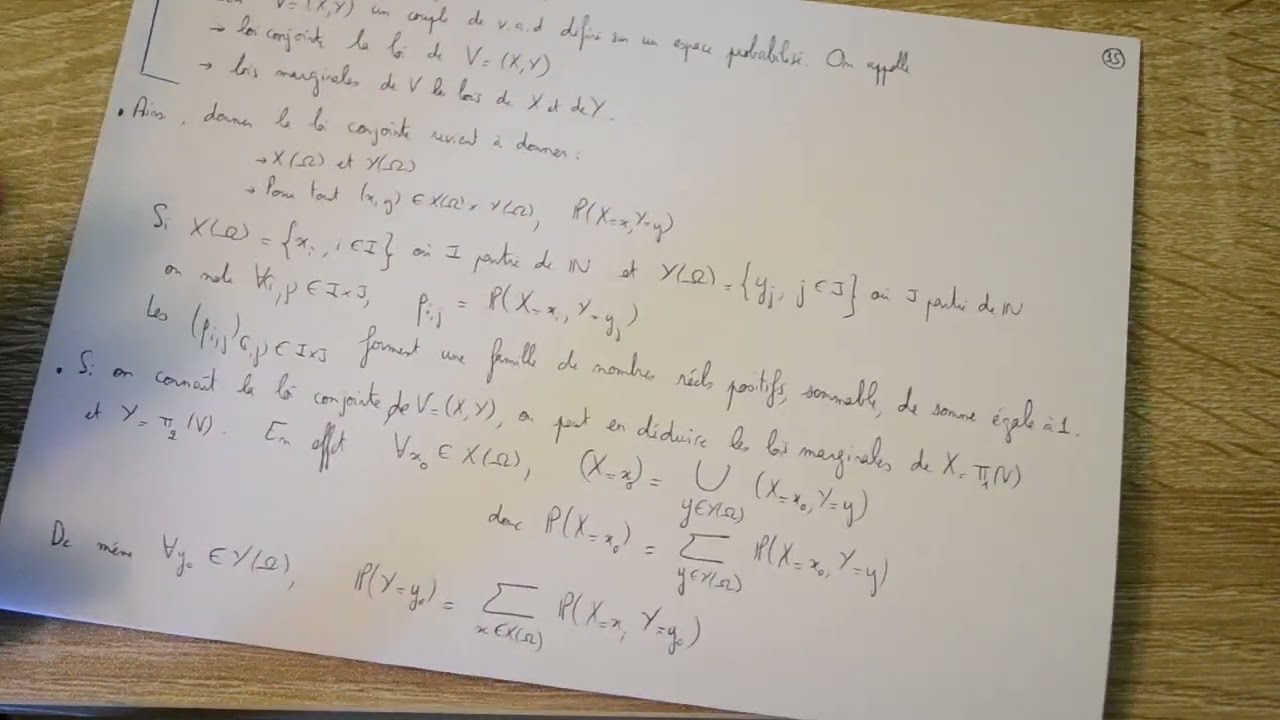 V=(X,Y) un couple de v.a.d défini sur un espace probabilisé. On appelle
35
→ loi conjointe la loi de V = (X,Y)
→ lois marginales de V les lois de X et de Y.
• Ainsi, donner la loi conjointe revient à donner :
→ X(Ω) et Y(Ω)
→ Pour tout (x,y) ∈ X(Ω) × Y(Ω), ℙ(X=x, Y=y)
Si X(Ω) = {x_i, i ∈ I} où I partie de ℕ et Y(Ω) = {y_j, j ∈ J} où J partie de ℕ
on note ∀i,j ∈ I×J, p_{i,j} = ℙ(X=x_i, Y=y_j)
Les (p_{i,j})_{(i,j) ∈ I×J} forment une famille de nombres réels positifs, sommable, de somme égale à 1.
• Si on connaît la loi conjointe de V=(X,Y), on peut en déduire les lois marginales de X = π_1(V)
et Y = π_2(V). En effet ∀x_0 ∈ X(Ω), (X=x_0) = ∪_{y∈Y(Ω)} (X=x_0, Y=y)
donc ℙ(X=x_0) = ∑_{y∈Y(Ω)} ℙ(X=x_0, Y=y)
De même ∀y_0 ∈ Y(Ω), ℙ(Y=y_0) = ∑_{x∈X(Ω)} ℙ(X=x, Y=y_0)